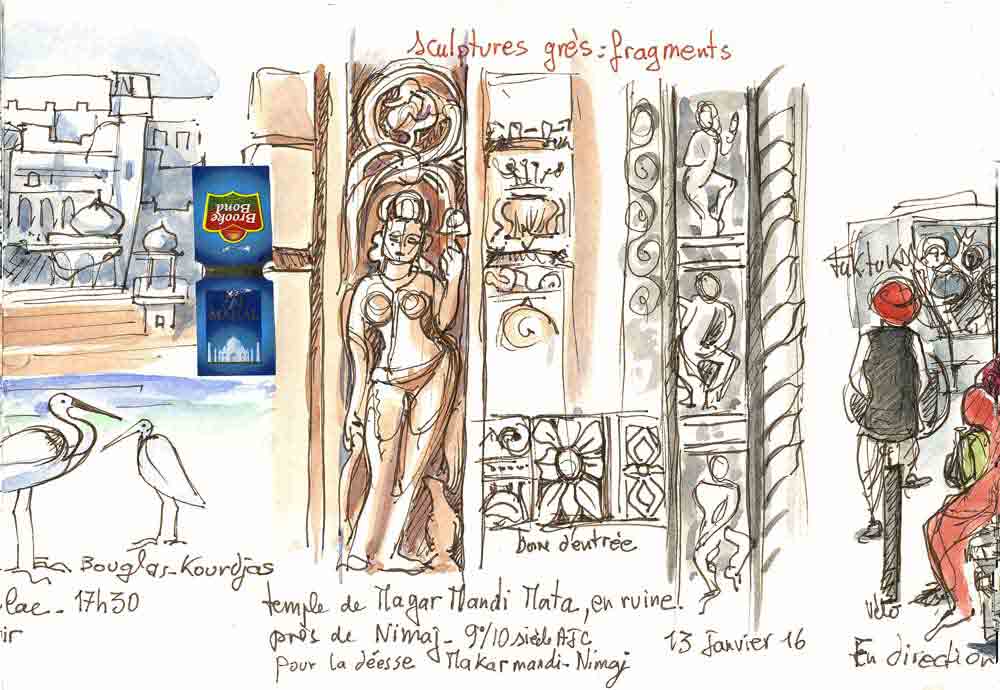 sculptures grès: fragments
Brooke
Bond
TAJ
MAHAL
tuktuk
Borne d'entrée
Bouglas-Kourdjas
lac - 17h30
ir
temple de Magar Mandi Mata, en ruine.
près de Nimaj - 9°/10 siècle AJC
pour la déesse Makarmandi-Nimaj
13 Janvier 16
vélo
En direction